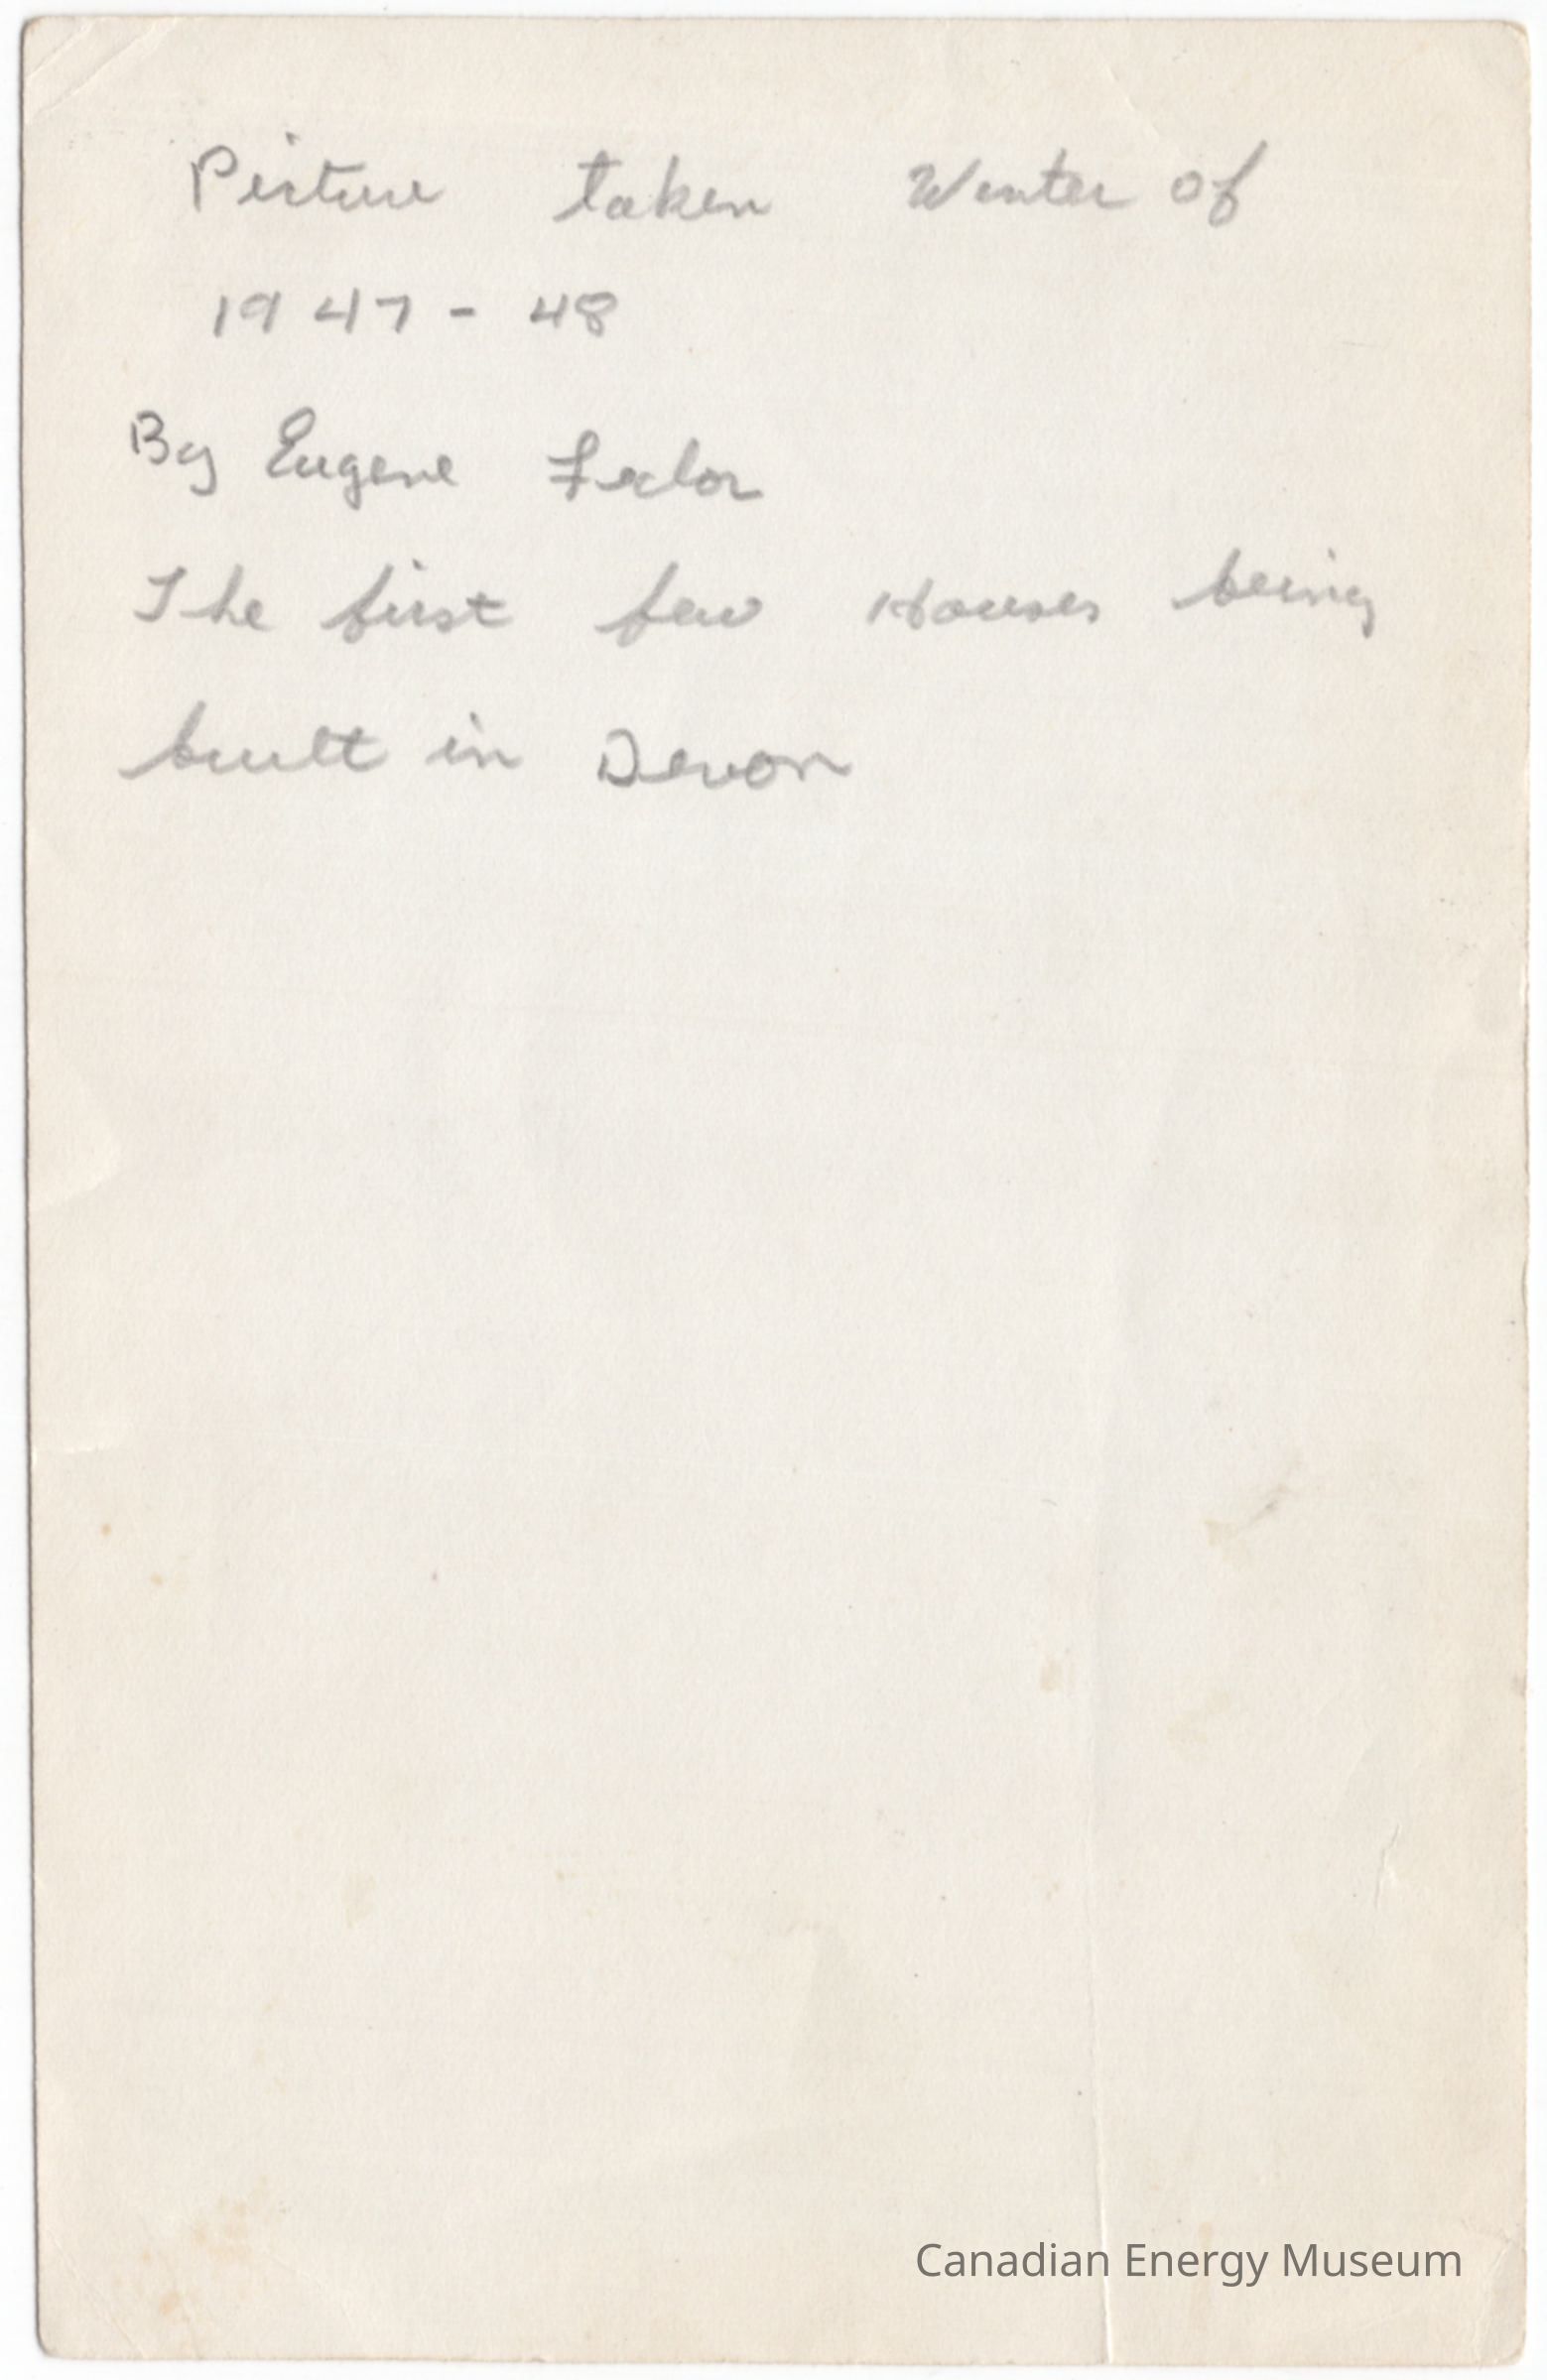 Picture taken Winter of
1947-48
By Eugene Fedor
The first few Houses being
built in Devon
Canadian Energy Museum